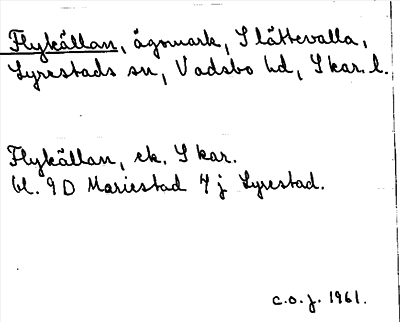 Flykällan, ägomark, Slättevalla,
Lyrestads sn, Vadsbo hd, Skar. l.
Flykällan, ek. Skar.
bl. 9D Mariestad 7j Lyrestad.
c.o.j. 1961.